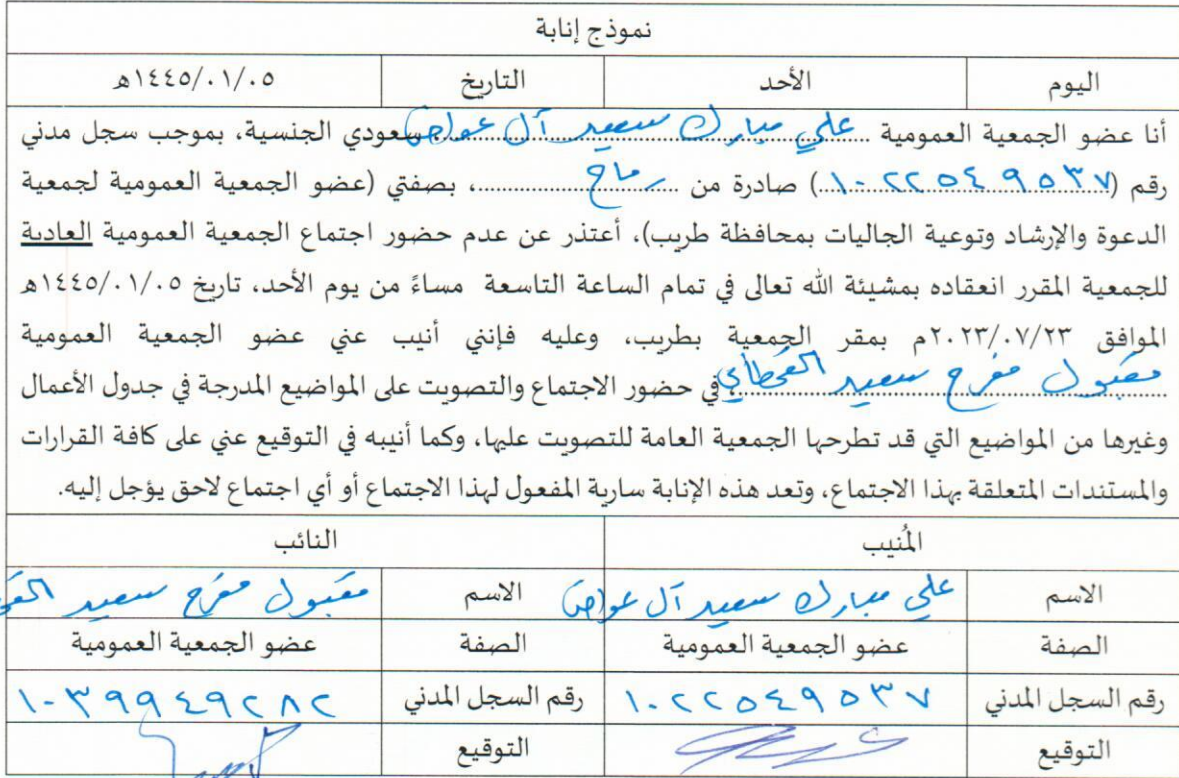 نموذج إنابة
اليوم الأحد التاريخ ١٤٤٥/٠١/٠٥هـ
أنا عضو الجمعية العمومية علي مبارك سعيد آل عواض، سعودي الجنسية، بموجب سجل مدني
رقم (١٠٢٢٥٤٩٥٣٧) صادرة من رماح، بصفتي (عضو الجمعية العمومية لجمعية
الدعوة والإرشاد وتوعية الجاليات بمحافظة طريب)، أعتذر عن عدم حضور اجتماع الجمعية العمومية العادية
للجمعية المقرر انعقاده بمشيئة الله تعالى في تمام الساعة التاسعة مساءً من يوم الأحد، تاريخ ١٤٤٥/٠١/٠٥هـ
الموافق ٢٠٢٣/٠٧/٢٣م بمقر الجمعية بطريب، وعليه فإنني أنيب عني عضو الجمعية العمومية
مقبول مفرح سعيد القحطاني، في حضور الاجتماع والتصويت على المواضيع المدرجة في جدول الأعمال
وغيرها من المواضيع التي قد تطرحها الجمعية العامة للتصويت عليها، وكما أنيبه في التوقيع عني على كافة القرارات
والمستندات المتعلقة بهذا الاجتماع، وتعد هذه الإنابة سارية المفعول لهذا الاجتماع أو أي اجتماع لاحق يؤجل إليه.
المُنيب النائب
الاسم علي مبارك سعيد آل عواض الاسم مقبول مفرح سعيد
الصفة عضو الجمعية العمومية الصفة عضو الجمعية العمومية
رقم السجل المدني ١٠٢٢٥٤٩٥٣٧ رقم السجل المدني ١٠٣٩٩٤٩٢٨٢
التوقيع التوقيع